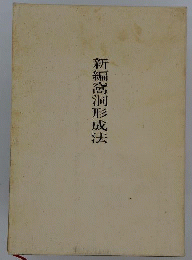 新編窩洞形成法